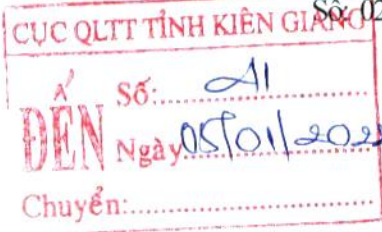 CỤC QLTT TỈNH KIÊN GIANG
Số: 02
ĐẾN
Số:
Ngày 05/01/202
Chuyển: